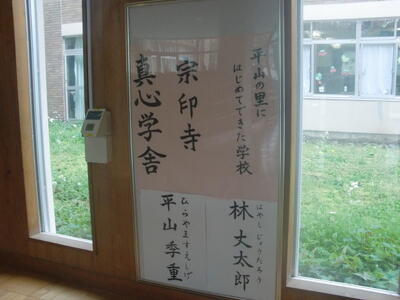 平山の里に
はじめてできた学校
宗印寺
真心学舎
はやし じょうたろう
林 丈太郎
ひらやますえしげ
平山季重